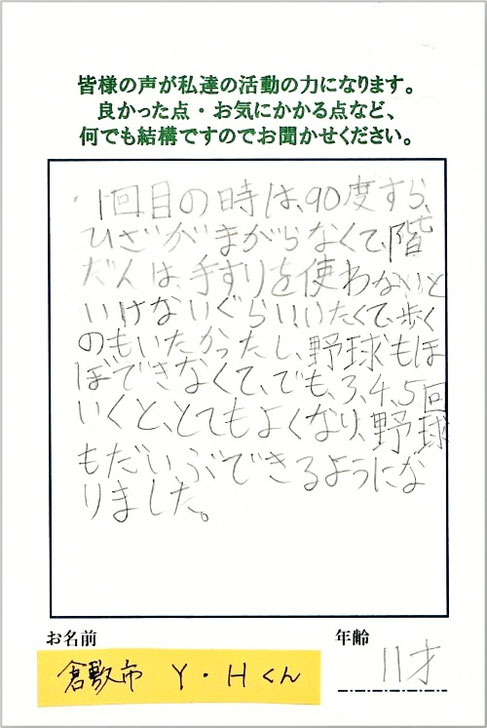 皆様の声が私達の活動の力になります。
良かった点・お気にかかる点など、
何でも結構ですのでお聞かせください。
1回目の時は、90度すら、
ひざがまがらなくて、階
だんは、手すりを使わないと
いけないぐらい、いたくて、歩く
のもいたかったし、野球もほ
ぼできなくて、でも、3、4、5回
いくと、とてもよくなり、野球
もだいぶできるようにな
りました。
お名前
年齢
倉敷市 Y・Hくん
11才